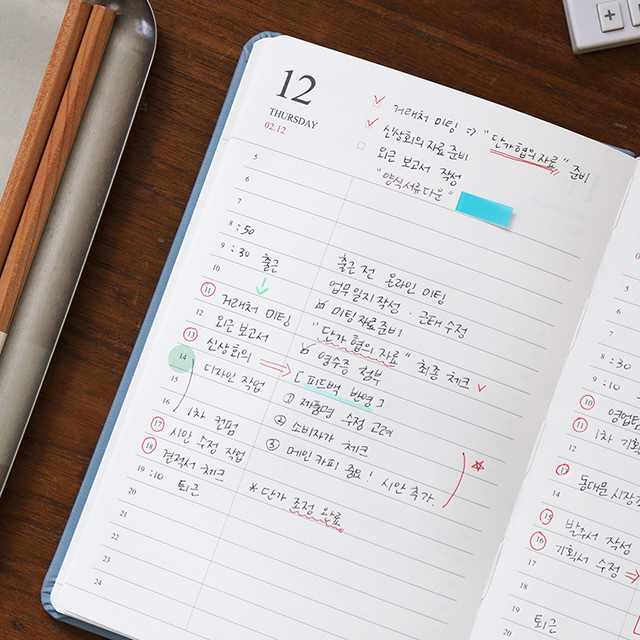 12
THURSDAY
02.12
거래처 미팅 => "단가협의자료" 준비
신상회의 자료 준비
외근 보고서 작성
"양식서류다운"
5
6
7
8:50
9:30 출근 출근 전 온라인 미팅
10 업무일지작성 · 근태수정
11 거래처 미팅 미팅자료준비
12 외근 보고서 "단가 협의 자료" 최종 체크
13 신상회의 영수증 첨부
14 디자인 작업 [피드백 반영]
15 ① 제품명 수정 고려
16 1차 컨펌 ② 소비자가 체크
17 시안 수정 작업 ③ 메인 카피 중요! 시안 추가.
18 견적서 체크
19:10 퇴근 *단가 조정 완료
20
21
22
23
24
7
8:30
9:10
10
11 1차 기획
12
13 동대문 시장
14
15 발주서 작성
16 기획서 수정
17
18
19 퇴근
20